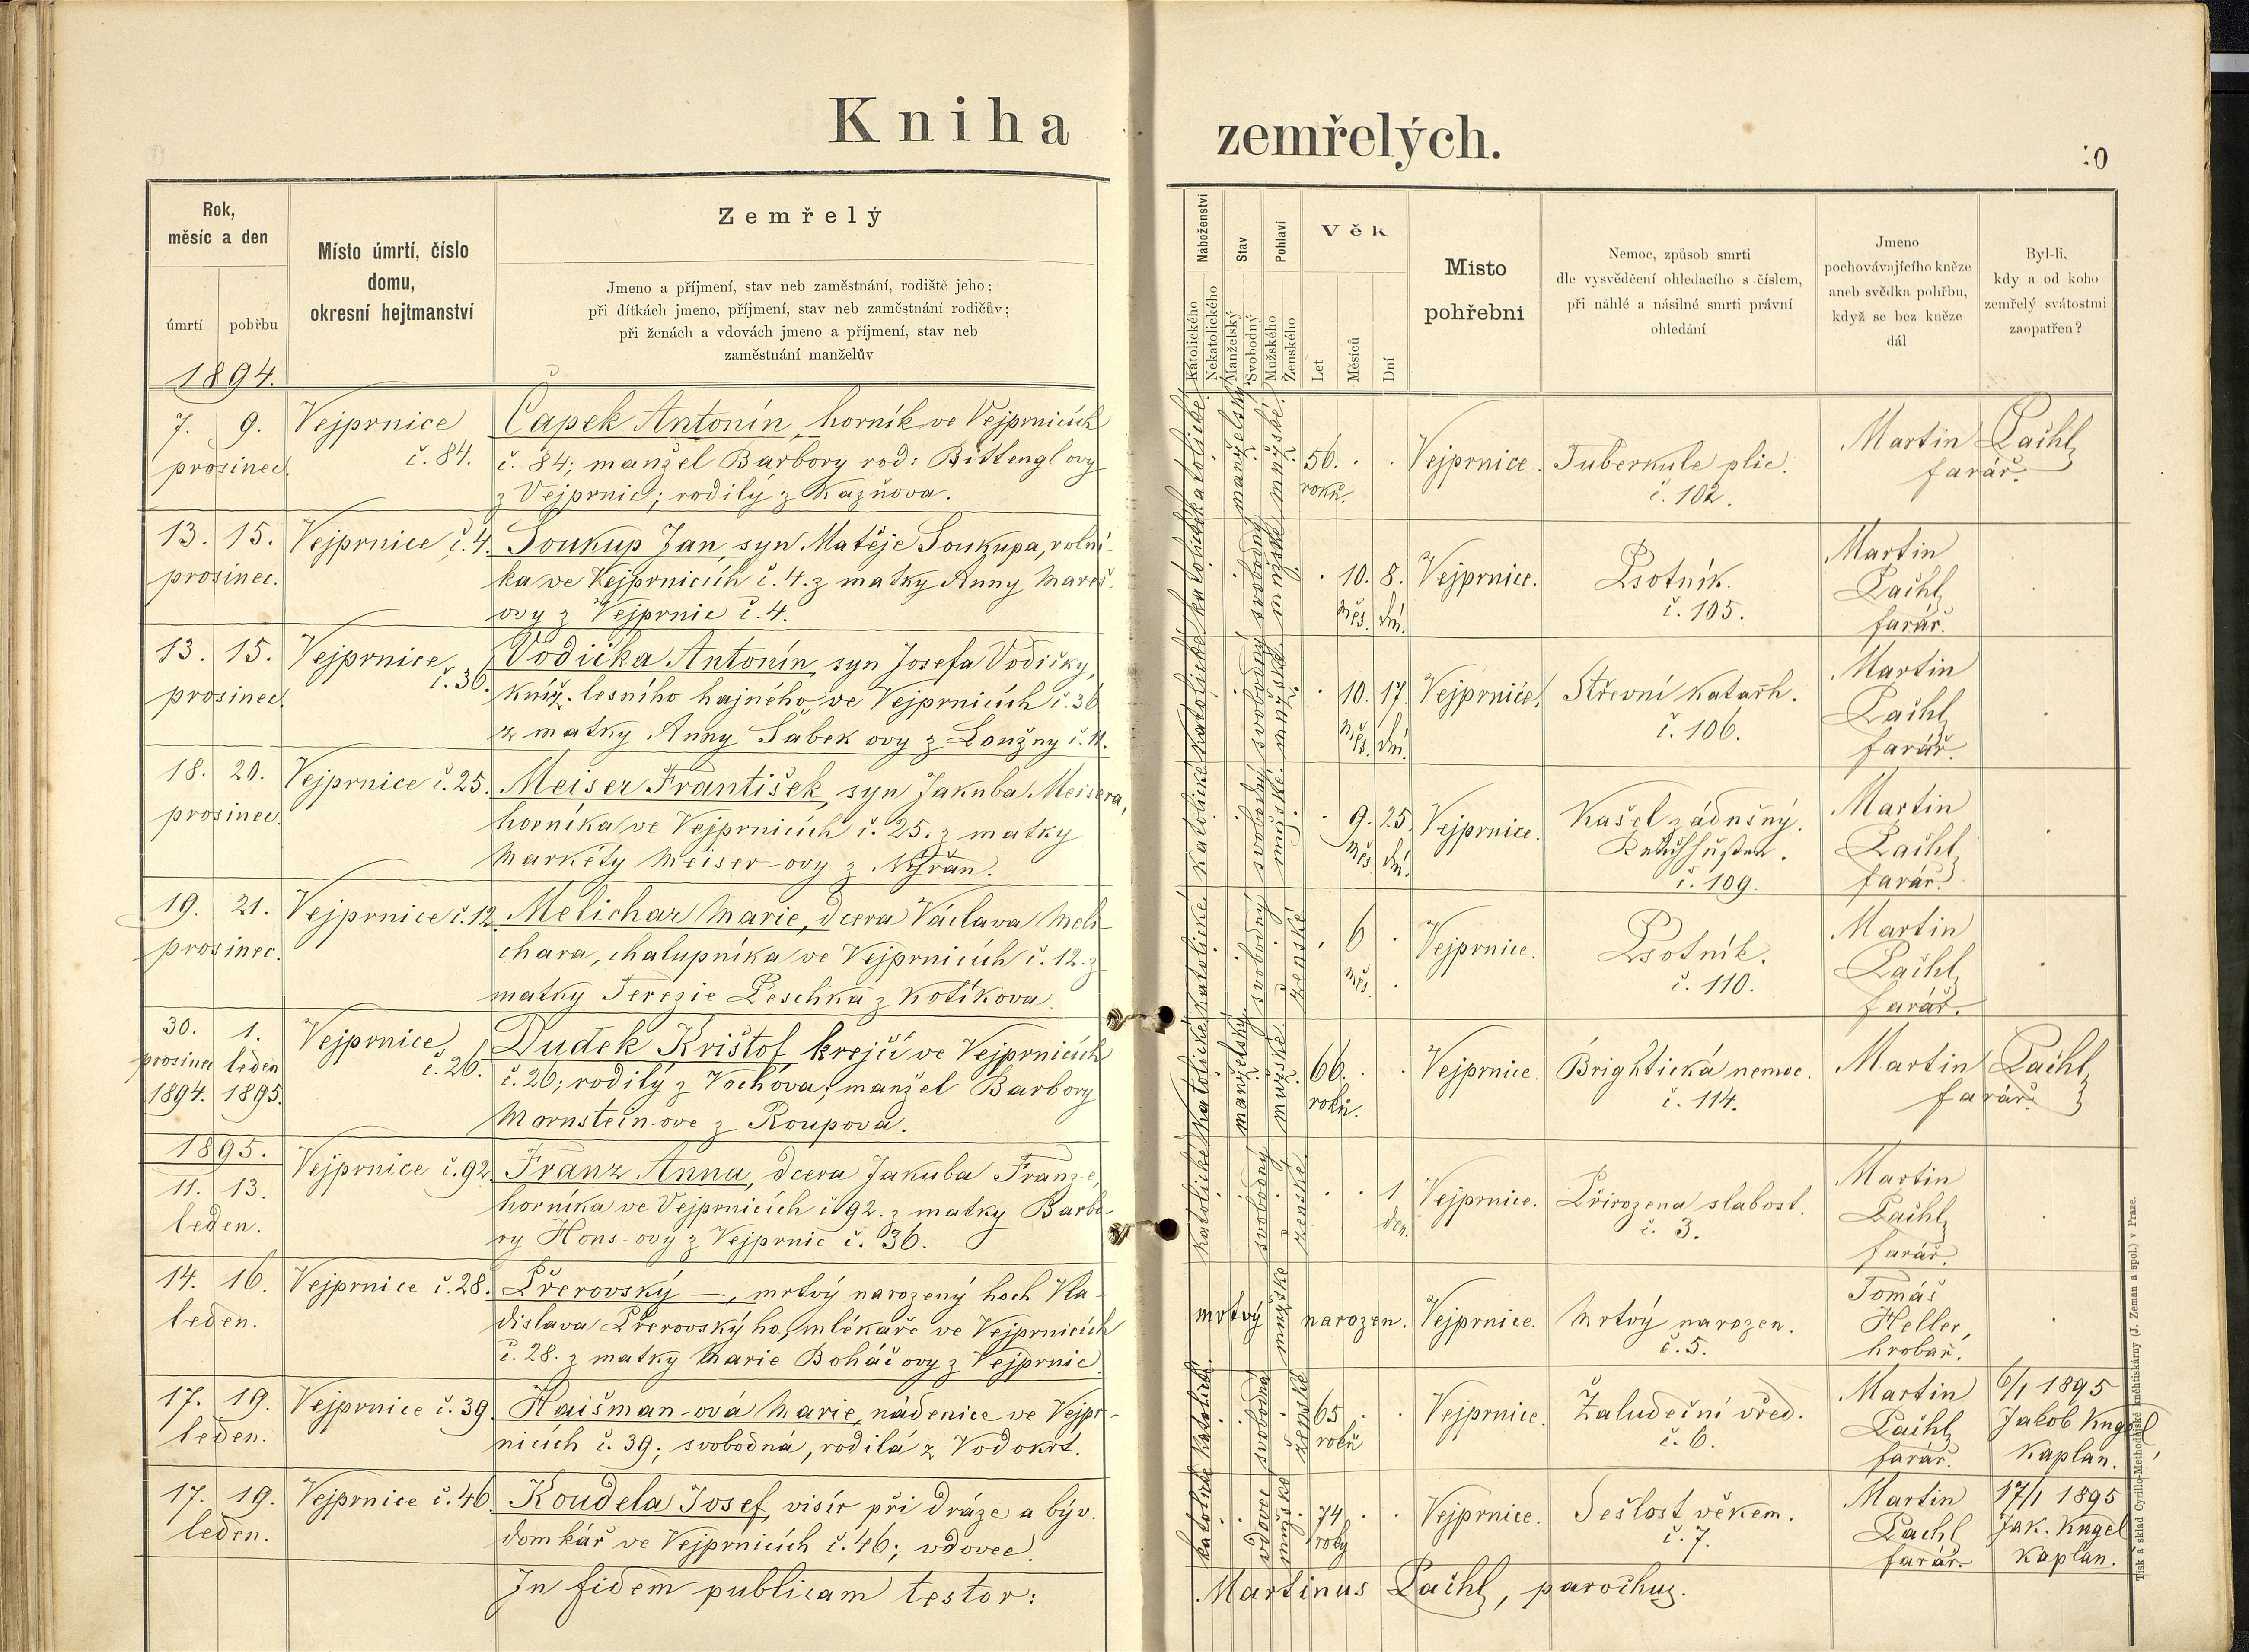 Kniha zemřelých.
0
Rok,
měsíc a den
úmrtí
pohřbu
Místo úmrtí, číslo
domu,
okresní hejtmanství
Zemřelý
Jmeno a příjmení, stav neb zaměstnání, rodiště jeho;
při dítkách jmeno, příjmení, stav neb zaměstnání rodičův;
při ženách a vdovách jmeno a příjmení, stav neb
zaměstnání manželův
Náboženství
Katolického
Nekatolického
Stav
Manželský
Svobodný
Pohlaví
Mužského
Ženského
Věk
Let
Měsíců
Dní
Místo
pohřební
Nemoc, způsob smrti
dle vysvědčení ohledacího s číslem,
při náhlé a násilné smrti právní
ohledání
Jmeno
pochovávajícího kněze
aneb svědka pohřbu,
když se bez kněze
dál
Byl-li,
kdy a od koho
zemřelý svátostmi
zaopatřen?
1894.
7. 9.
prosinec.
Vejprnice
č. 84.
Čapek Antonín, horník ve Vejprnicích
č. 84; manžel Barbory rod: Bittengl ovy
z Vejprnic; rodilý z Kazňova.
katolické
manželský
mužské
56.
roků.
Vejprnice.
Tuberkule plic.
č. 102.
Martin Pachl,
farář.
13. 15.
prosinec.
Vejprnice č. 4.
Soukup Jan, syn Matěje Soukupa, rolní-
ka ve Vejprnicích č. 4. z matky Anny Mareš-
ovy z Vejprnic č. 4.
katolické
svobodný
mužské
10. 8.
měs. dní.
Vejprnice.
Psotník.
č. 105.
Martin
Pachl,
farář.
13. 15.
prosinec.
Vejprnice
č. 36.
Vodička Antonín, syn Josefa Vodičky,
kníž. lesního hajného ve Vejprnicích č. 36
z matky Anny Šabek ovy z Loužny č. 11.
katolické
svobodný
mužské
10. 17.
měs. dní.
Vejprnice.
Střevní katarh.
č. 106.
Martin
Pachl,
farář.
18. 20.
prosinec.
Vejprnice č. 25.
Meiser František, syn Jakuba Meisera,
horníka ve Vejprnicích č. 25. z matky
Markéty Meiser-ovy z Nýřan.
katolické
svobodný
mužské.
9. 25.
měs. dní.
Vejprnice.
Kašel zádušný.
Keuchhusten.
č. 109.
Martin
Pachl,
farář.
19. 21.
prosinec.
Vejprnice č. 12.
Melichar Marie, dcera Václava Meli-
chara, chalupníka ve Vejprnicích č. 12. z
matky Terezie Peschka z Kotíkova.
katolické
svobodný
ženské
6
měs.
Vejprnice.
Psotník.
č. 110.
Martin
Pachl,
farář.
30. 1.
prosinec leden
1894. 1895.
Vejprnice
č. 26.
Dudek Krištof, krejčí ve Vejprnicích
č. 26; rodilý z Vochova; manžel Barbory
Mornstein-ove z Roupova.
katolické
manželský
mužské
66.
roků.
Vejprnice.
Brightická nemoc.
č. 114.
Martin Pachl,
farář.
1895.
11. 13.
leden.
Vejprnice č. 92.
Franz Anna, dcera Jakuba Franz-e,
horníka ve Vejprnicích č. 92. z matky Barbo-
ry Hons-ovy z Vejprnic č. 36.
katolické
svobodný
ženské
1
den.
Vejprnice.
Přirozena slabost.
č. 3.
Martin
Pachl,
farář.
14. 16.
leden.
Vejprnice č. 28.
Přerovský —, mrtvý narozený hoch Vla-
dislava Přerovský ho, mlékaře ve Vejprnicích
č. 28. z matky Marie Boháč ovy z Vejprnic
mrtvý narozen.
mužské
Vejprnice.
Mrtvý narozen.
č. 5.
Tomáš
Heller,
hrobař.
17. 19.
leden.
Vejprnice č. 39.
Haišman-ová Marie, nádenice ve Vejpr-
nicích č. 39; svobodná, rodilá z Vodokrt.
katolické
svobodná
ženské
65
roků
Vejprnice.
Žaludeční vřed.
č. 6.
Martin
Pachl,
farář.
6/1 1895
Jakob Kngel,
kaplan.
17. 19.
leden.
Vejprnice č. 46.
Koudela Josef, visír při dráze a býv.
domkář ve Vejprnicích č. 46; vdovec.
katolické
vdovec
mužské
74
roky
Vejprnice.
Sešlost věkem.
č. 7.
Martin
Pachl
farář.
17/1 1895
Jak. Kngel
kaplan.
In fidem publicam testor:
Martinus Pachl, parochus.
Tisk a sklad Cyrillo-Methodějské knihtiskárny (J. Zeman a spol.) v Praze.